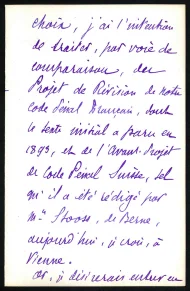 choix, j'ai l'intention
de traiter, par voie de
comparaison, du
Projet de Révision de notre
Code Pénal Français, dont
le texte initial a paru en
1893, et de l'Avant-Projet
de Code Pénal Suisse, tel
qu'il a été rédigé par
Mr Stooss, de Berne,
aujourd'hui, je crois, à
Vienne.
Or, je désirerais entrer en